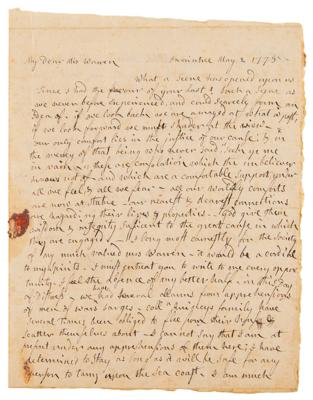 My Dear Mrs Warren Braintree May 2 1775
What a scene has opened upon us
Since I had the favour of your last! Such a scene as
we never before experienced, and could scarcely form an
Idea of. if we look back we are amazed at what is past,
if we look forward we must shudder at the view
our only comfort lies in the justice of our cause; & in
the mercy of that being who never said, "seek ye me
in vain. these are consolation which the unbeliever
knows not of and which are a comfortable support under
all we feel, & all we fear — all our worldly comforts
are now at stake — our nearest & dearest connections
are hazarding their lives & properties. God give them
wisdom & integrity sufficient to the great cause in which
they are engaged. I long most earnestly for the Society
of my much valued Mrs Warren. it would be a cordial
to my spirits. I must entreat you to write to me every oppor
tunity. I feel the absence of my better half, in this Day
of Distress. we have had several alarms from apprehensions
of men of wars barges. Coll Quincys family have
several times been obliged to flee from their house &
scatter themselves about. I cannot say that I am at
present under any apprehensions of them here; I have
determined to stay as long as it will be safe for any
person to tarry upon the sea coast. I am much